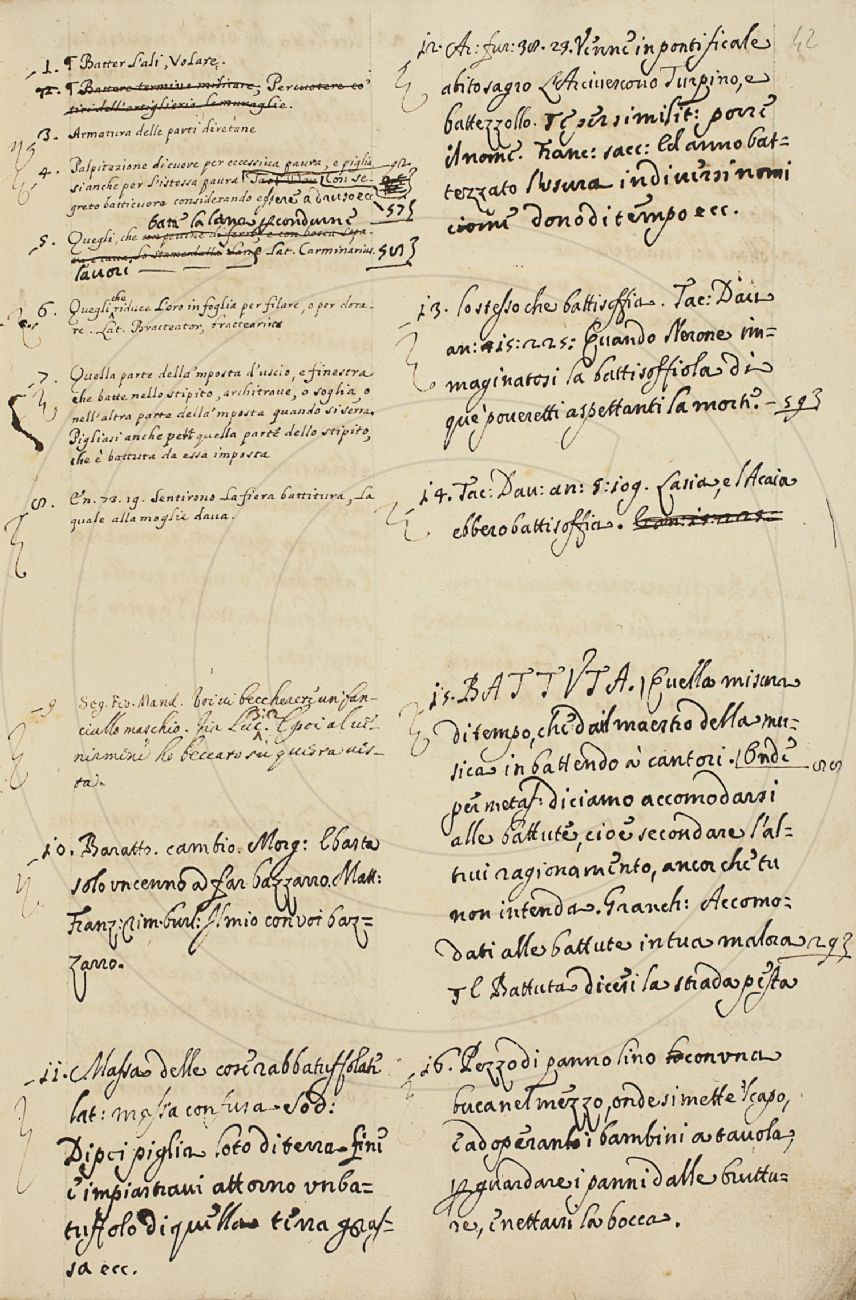 1. ¶ Batter l'ali, Volare.
2. ¶ Battere termine militare, Percuotere co'
tiri dell'artiglieria le muraglie.
3. Armatura delle parti diretane
4. Palpitazione di cuore per eccessiva paura, e piglia
si anche per l'istessa paura con se-
greto batticuore considerando essere
57}
batte la lana
5. Quegli, che
Lat. Carminarius.
lavori
6. Quegli, che riduce l'oro in foglia per filare, o per dora-
re. Lat. Bracteator, bractearius
7. Quella parte della 'mposta d'uscio, e finestra
che batte nello stipito, architrave, o soglia, o
nell'altra parte della 'mposta quando si serra.
Pigliasi anche per quella parte dello stipito,
che è battuta da essa imposta
8. En. 73. 19. Sentirono la fiera battitura, la
quale alla moglie dava.
9 Seg. Fio. Mand. Voi vi beccherete un fan-
ciullo maschio. E poi al ve-
nirmene ho beccato su questa ves-
ta.
10. Baratto. cambio. Morg: E basta
solo un cenno a far bazzarro. Matt:
Franz: rim. burl: Il mio con voi baz=
zarro.
11. Massa delle cose rabbatuffolate
lat: massa confusa. Sod:
Dipoi piglia loto di terra fine
e impiastravi attorno un ba=
tuffolo di quella terra gras-
sa ecc.
42
12. Ar: fur: 38. 23. Venne in pontificale
abito sagro l'Arcivescovo Turpino, e
battezzollo. ¶ E per similit: porre
il nome. Franc: sacc: Ed anno bat=
tezzato l'usura in diversi nomi
come dono di tempo ecc.
13. lo stesso che battisoffia. Tac: Dav:
an: 15: 225: Quando Nerone im=
maginatosi la battisoffiola di
que' poveretti aspettanti la morte. 59}
14. Tac: Dav: an: 5: 109. L'asia, e l'Acaia
ebbero battisoffia.
15. BATTUTA. Quella misura
di tempo, che dà il maestro della mu-
sica in battendo a' cantori. Onde 58
per metaf: diciamo accomodarsi
alle battute, cioè secondare l'al-
trui ragionamento, ancor che tu
non intenda. Granch: Accomo=
dati alle battute in tua malora 29}
¶ E Battuta dicesi la strada pesta
16. Pezzo di panno lino con una
buca nel mezzo, onde si mette il capo,
e adoperanlo i bambini a tavola,
p guardare i panni dalle bruttu=
re, e nettarsi la bocca.